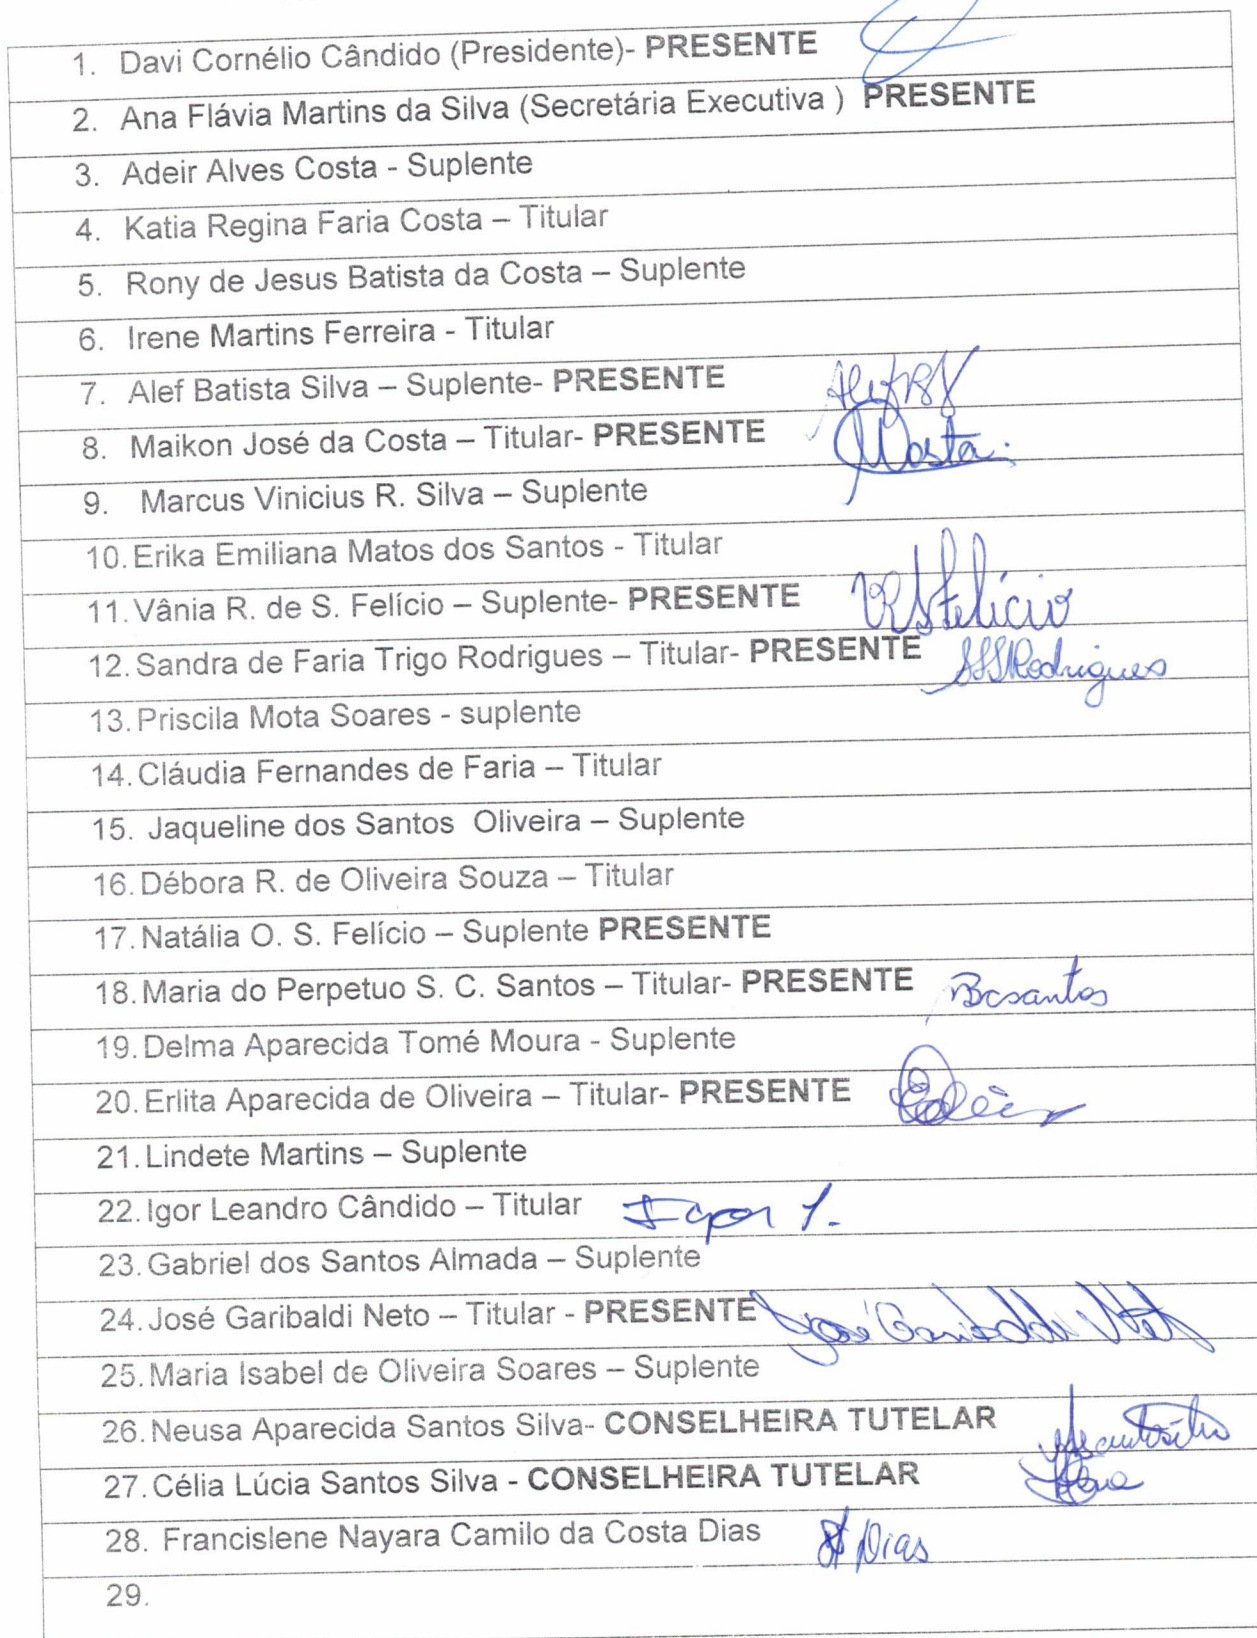 1. Davi Cornélio Cândido (Presidente)- PRESENTE
2. Ana Flávia Martins da Silva (Secretária Executiva ) PRESENTE
3. Adeir Alves Costa - Suplente
4. Katia Regina Faria Costa – Titular
5. Rony de Jesus Batista da Costa – Suplente
6. Irene Martins Ferreira - Titular
7. Alef Batista Silva – Suplente- PRESENTE
8. Maikon José da Costa – Titular- PRESENTE MCosta.
9. Marcus Vinicius R. Silva – Suplente
10. Erika Emiliana Matos dos Santos - Titular
11. Vânia R. de S. Felício – Suplente- PRESENTE VRSFelício
12. Sandra de Faria Trigo Rodrigues – Titular- PRESENTE Rodrigues
13. Priscila Mota Soares - suplente
14. Cláudia Fernandes de Faria – Titular
15. Jaqueline dos Santos Oliveira – Suplente
16. Débora R. de Oliveira Souza – Titular
17. Natália O. S. Felício – Suplente PRESENTE
18. Maria do Perpetuo S. C. Santos – Titular- PRESENTE
19. Delma Aparecida Tomé Moura - Suplente
20. Erlita Aparecida de Oliveira – Titular- PRESENTE
21. Lindete Martins – Suplente
22. Igor Leandro Cândido – Titular Igor L.
23. Gabriel dos Santos Almada – Suplente
24. José Garibaldi Neto – Titular - PRESENTE José Garibaldi Neto
25. Maria Isabel de Oliveira Soares – Suplente
26. Neusa Aparecida Santos Silva- CONSELHEIRA TUTELAR
27. Célia Lúcia Santos Silva - CONSELHEIRA TUTELAR
28. Francislene Nayara Camilo da Costa Dias Dias
29.